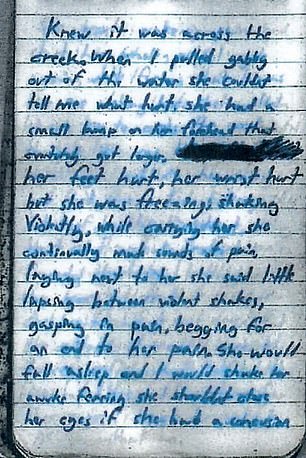 Knew it was across the
creek. When I pulled gabby
out of the water she couldnt
tell me what hurt, she had a
small bump on her forehead that
eventually got larger.
her feet hurt, her wrist hurt
but she was freezing, shaking
Violently, while carrying her she
continually made sounds of pain,
laying next to her she said little
lapsing between violent shakes,
gasping in pain, begging for
an end to her pain. She would
fall asleep and I would shake her
awake fearing she shouldnt close
her eyes if she had a concusion